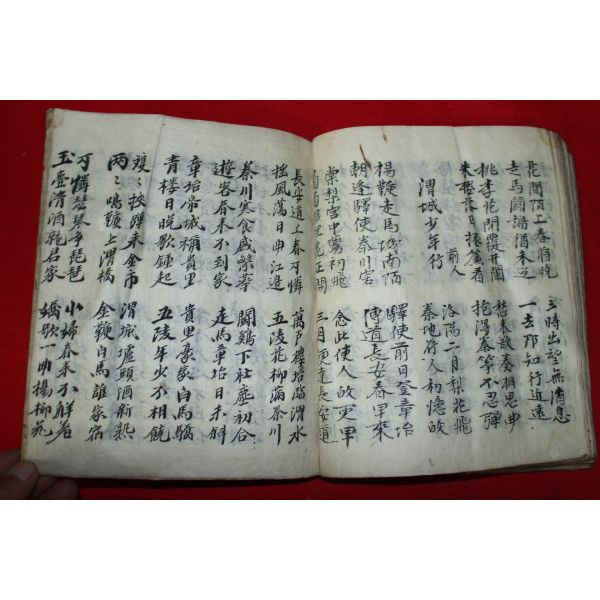 花開陌上春將晚
走馬鬪鷄猶未返
三時出望無消息
一去那知行近遠
桃李花開覆井欄
朱樓落日捲簾看
愁來欲奏相思曲
抱得秦箏不忍彈
渭城少年行
前人
洛陽二月梨花飛
秦地行人初憶故
楊鞭走馬城南陌
朝逢驛使秦川客
驛使前日登章坮
傳道長安春早來
棠梨宮中鶯初飛
裡花正開
念此使人故更早
三月便達長安道
長安道上春可憐
搖風蕩日曲江邊
萬戶樓坮臨渭水
五陵花柳滿秦川
秦川寒食盛繁華
遊客春來不到家
鬪鷄下杜塵初合
走馬章坮日未斜
章坮帝城稱貴里
青樓日晚歌鍾起
貴里豪家白馬驕
五陵年少不相饒
雙〻挾彈來金市
兩〻鳴鞭上渭橋
渭城壚頭酒新熟
金鞍白馬誰家宿
可憐瑟琴爭琵琶
玉臺清酒就君家
小婦春來不解羞
嬌歌一曲楊柳花